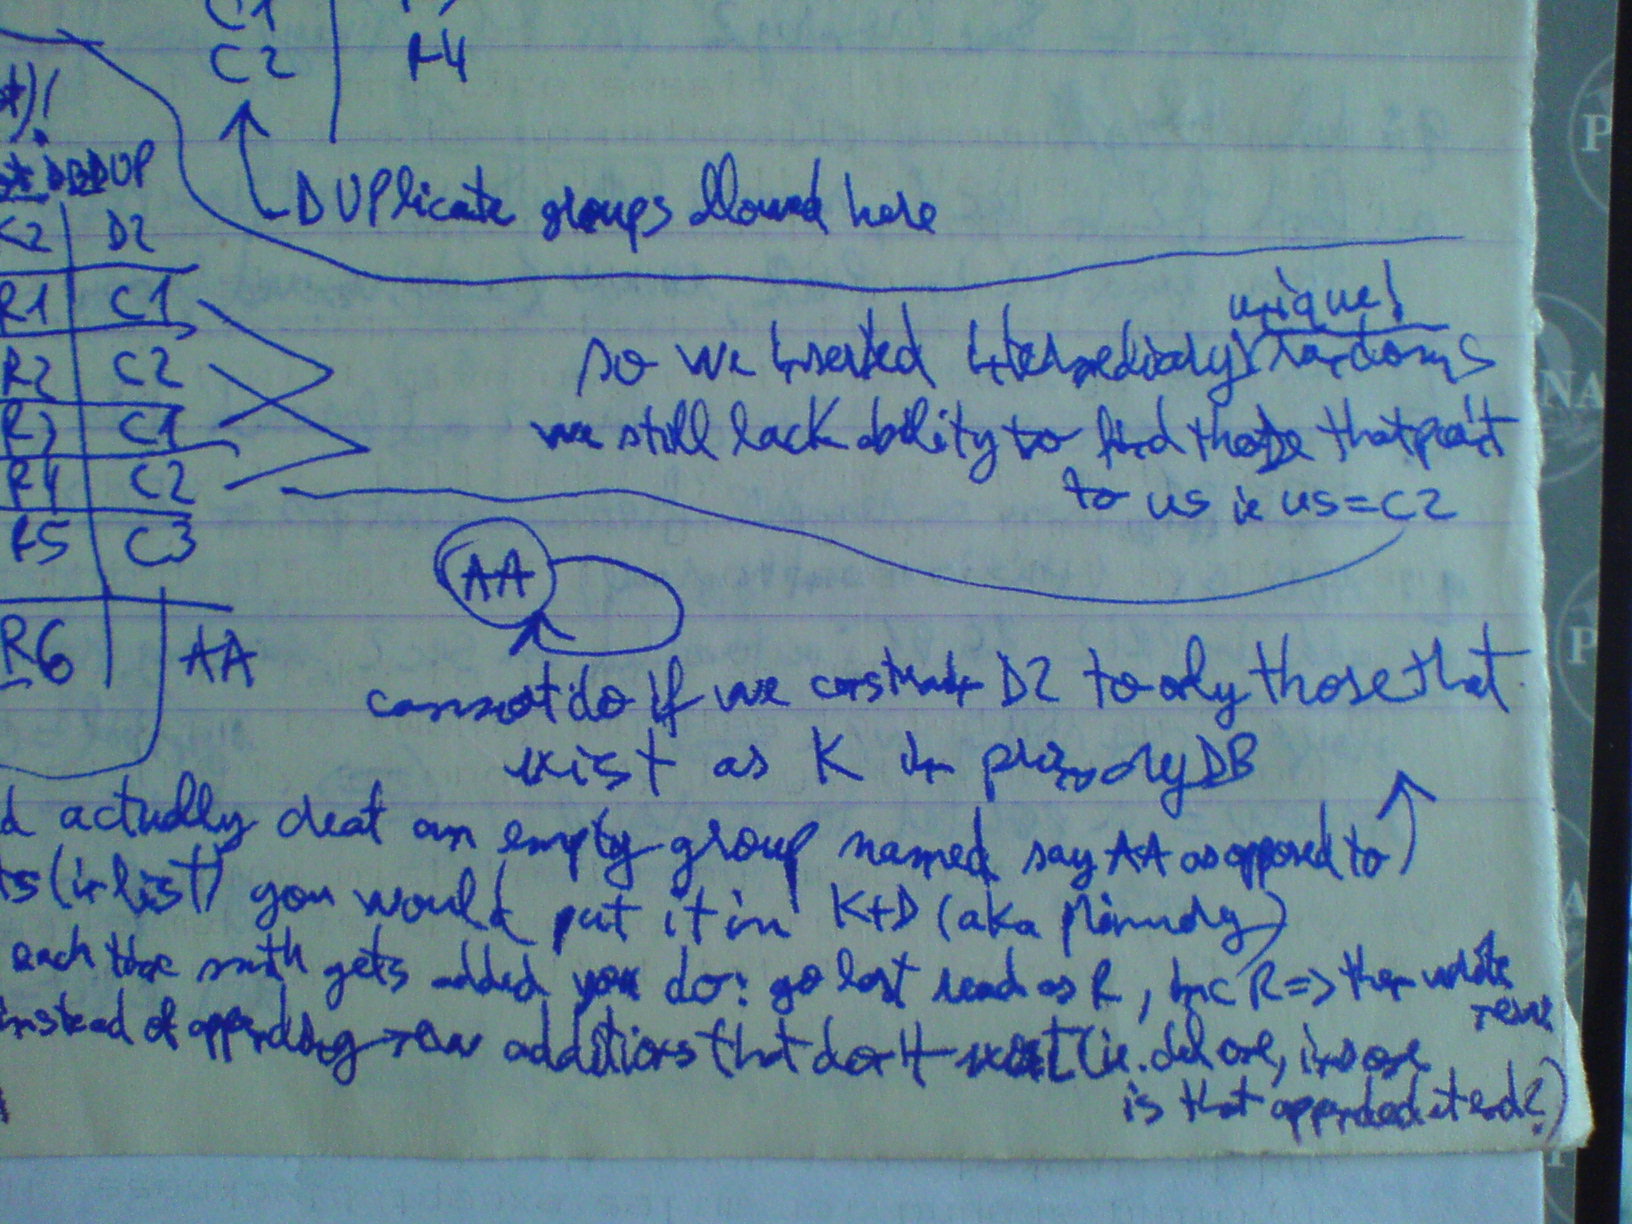 C1
C2 R4
DBDUP
DUPlicate groups allowed here
K2 D2
unique!
R1 C1
so we inserted intermediary randoms
R2 C2
R3 C1
we still lack ability to find those that point
R4 C2
to us ie us=C2
R5 C3
AA
R6 AA
cannot do if we constrain D2 to only those that
exist as K in primary DB
actually creat an empty group named say AA as opposed to
(in list) you would put it in K+D (aka primary)
each time smth gets added you do: go last read as R, inc R => then write
new
instead of appending new additions that don't exist (ie. del one, ins one
is that appended at end?)